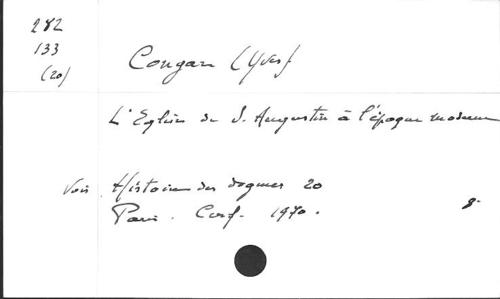 282
133
(20)
Congar (Yves)
L'Eglise de S. Augustin à l'époque moderne
Voir Histoire des dogmes 20
Paris. Cerf. 1970.
8°